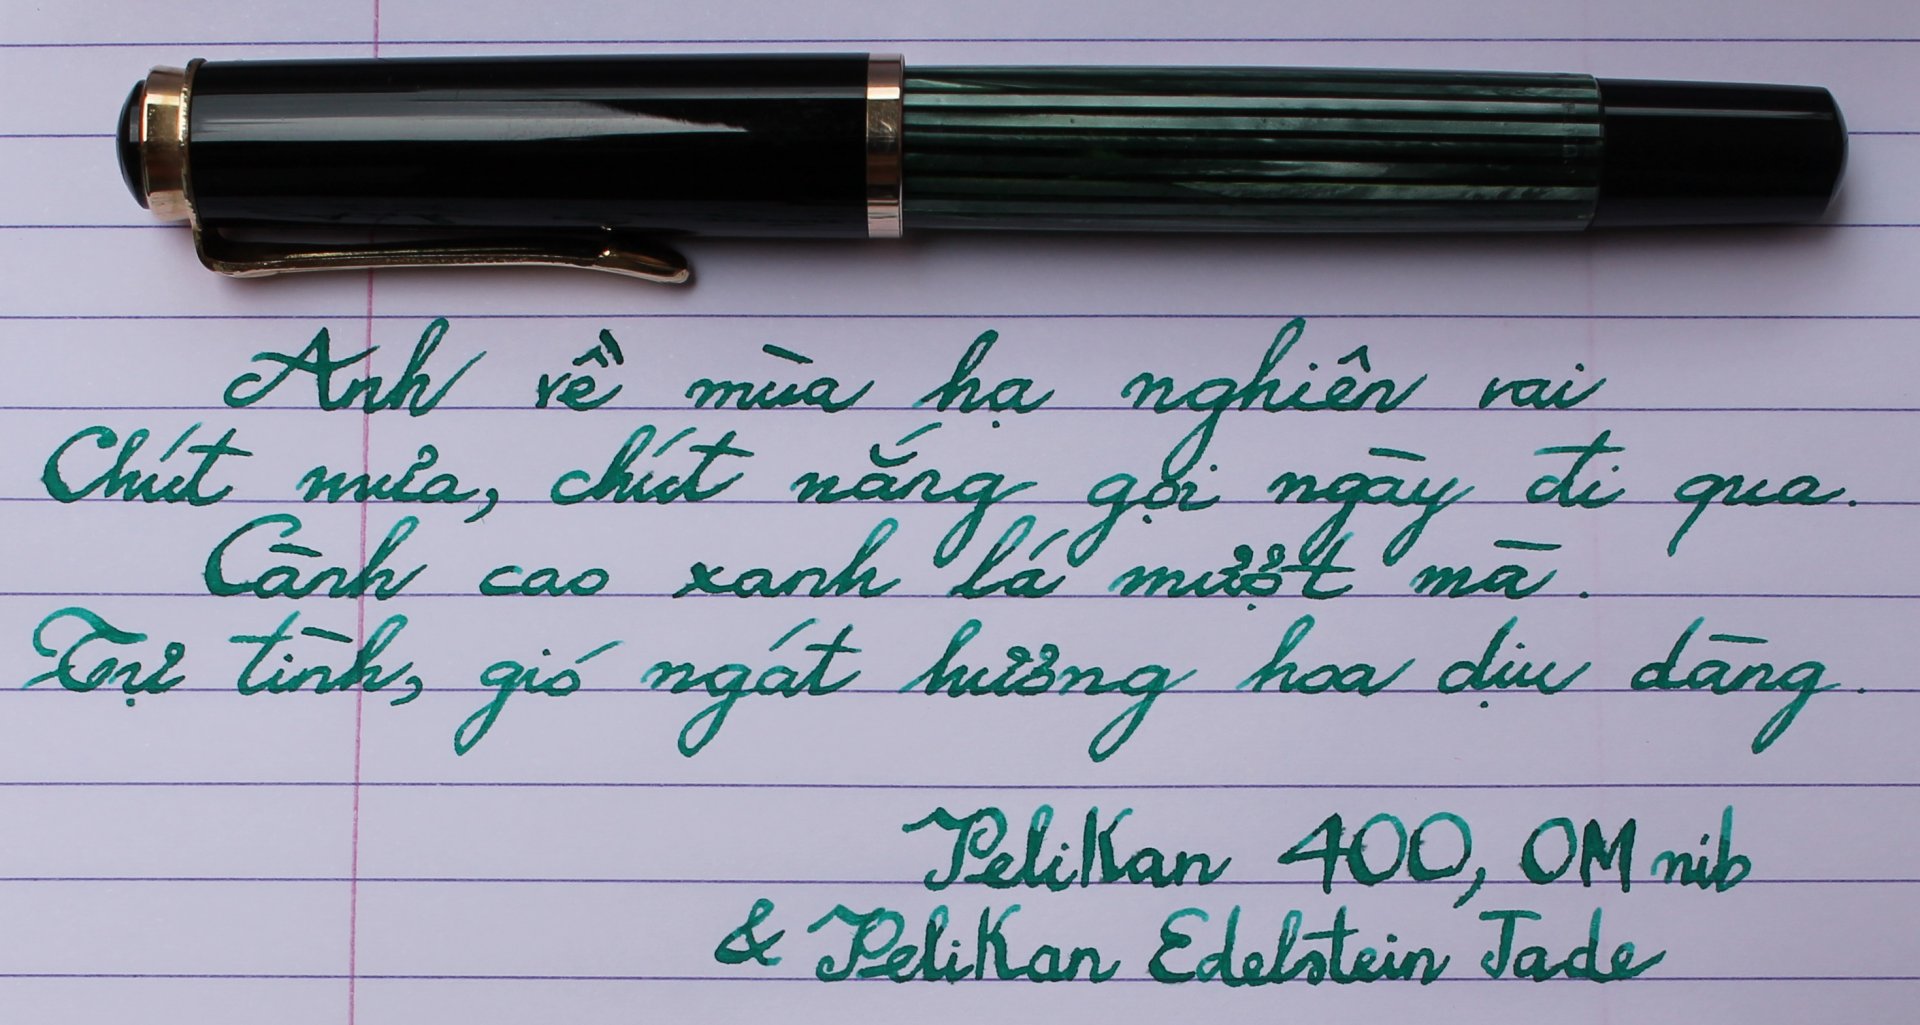 Anh về mùa hạ nghiên vai
Chút mưa, chút nắng gọi ngày đi qua.
Cành cao xanh lá mượt mà.
Tự tình, gió ngát hương hoa dịu dàng.
Pelikan 400, OM nib
& Pelikan Edelstein Jade